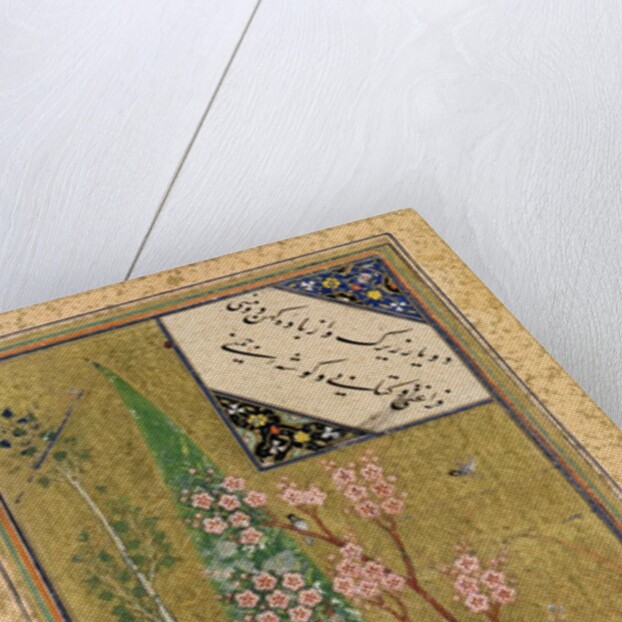 دو یار زیرک و از باده کهن دو منی
فراغتی و کتابی و گوشه چمنی